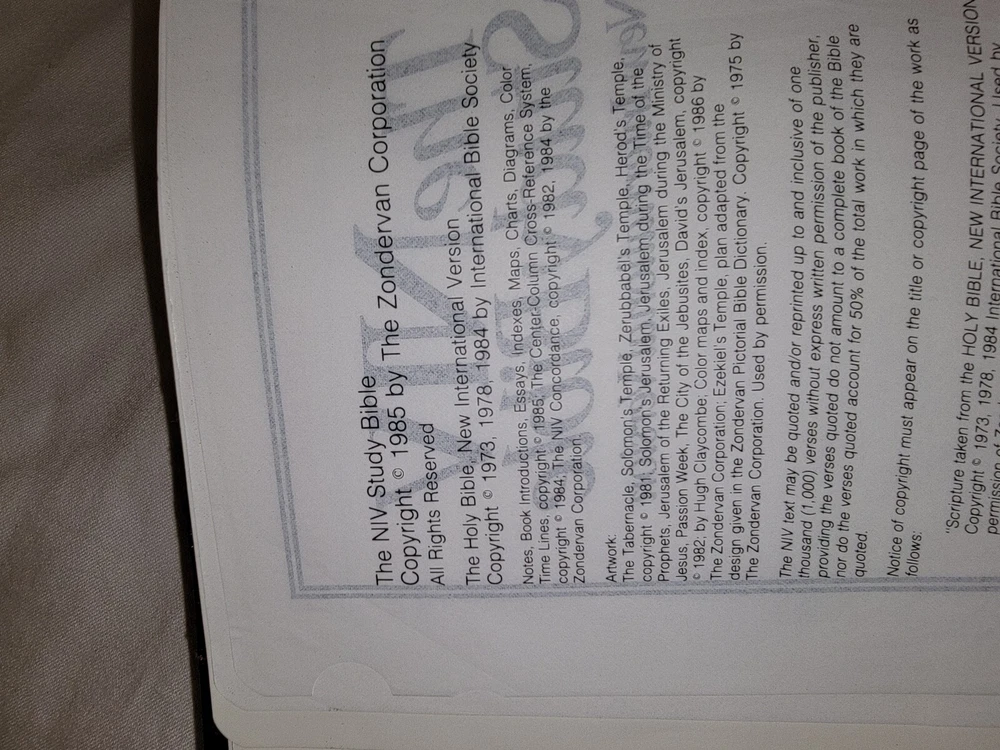 The NIV Study Bible
Copyright © 1985 by The Zondervan Corporation
All Rights Reserved
The Holy Bible, New International Version
Copyright © 1973, 1978, 1984 by International Bible Society
Notes, Book Introductions, Essays, Indexes, Maps, Charts, Diagrams, Color
Time Lines, copyright © 1985; The Center-Column Cross-Reference System,
copyright © 1984; The NIV Concordance, copyright © 1982, 1984 by the
Zondervan Corporation.
Artwork:
The Tabernacle, Solomon's Temple, Zerubbabel's Temple, Herod's Temple,
copyright © 1981; Solomon's Jerusalem, Jerusalem during the Time of the
Prophets, Jerusalem of the Returning Exiles, Jerusalem during the Ministry of
Jesus, Passion Week, The City of the Jebusites, David's Jerusalem, copyright
© 1982; by Hugh Claycombe; Color maps and index, copyright © 1986 by
The Zondervan Corporation; Ezekiel's Temple, plan adapted from the
design given in the Zondervan Pictorial Bible Dictionary. Copyright © 1975 by
The Zondervan Corporation. Used by permission.
The NIV text may be quoted and/or reprinted up to and inclusive of one
thousand (1,000) verses without express written permission of the publisher,
providing the verses quoted do not amount to a complete book of the Bible
nor do the verses quoted account for 50% of the total work in which they are
quoted.
Notice of copyright must appear on the title or copyright page of the work as
follows:
"Scripture taken from the HOLY BIBLE, NEW INTERNATIONAL VERSION
Copyright © 1973, 1978, 1984 International Bible Society. Used by
permission of